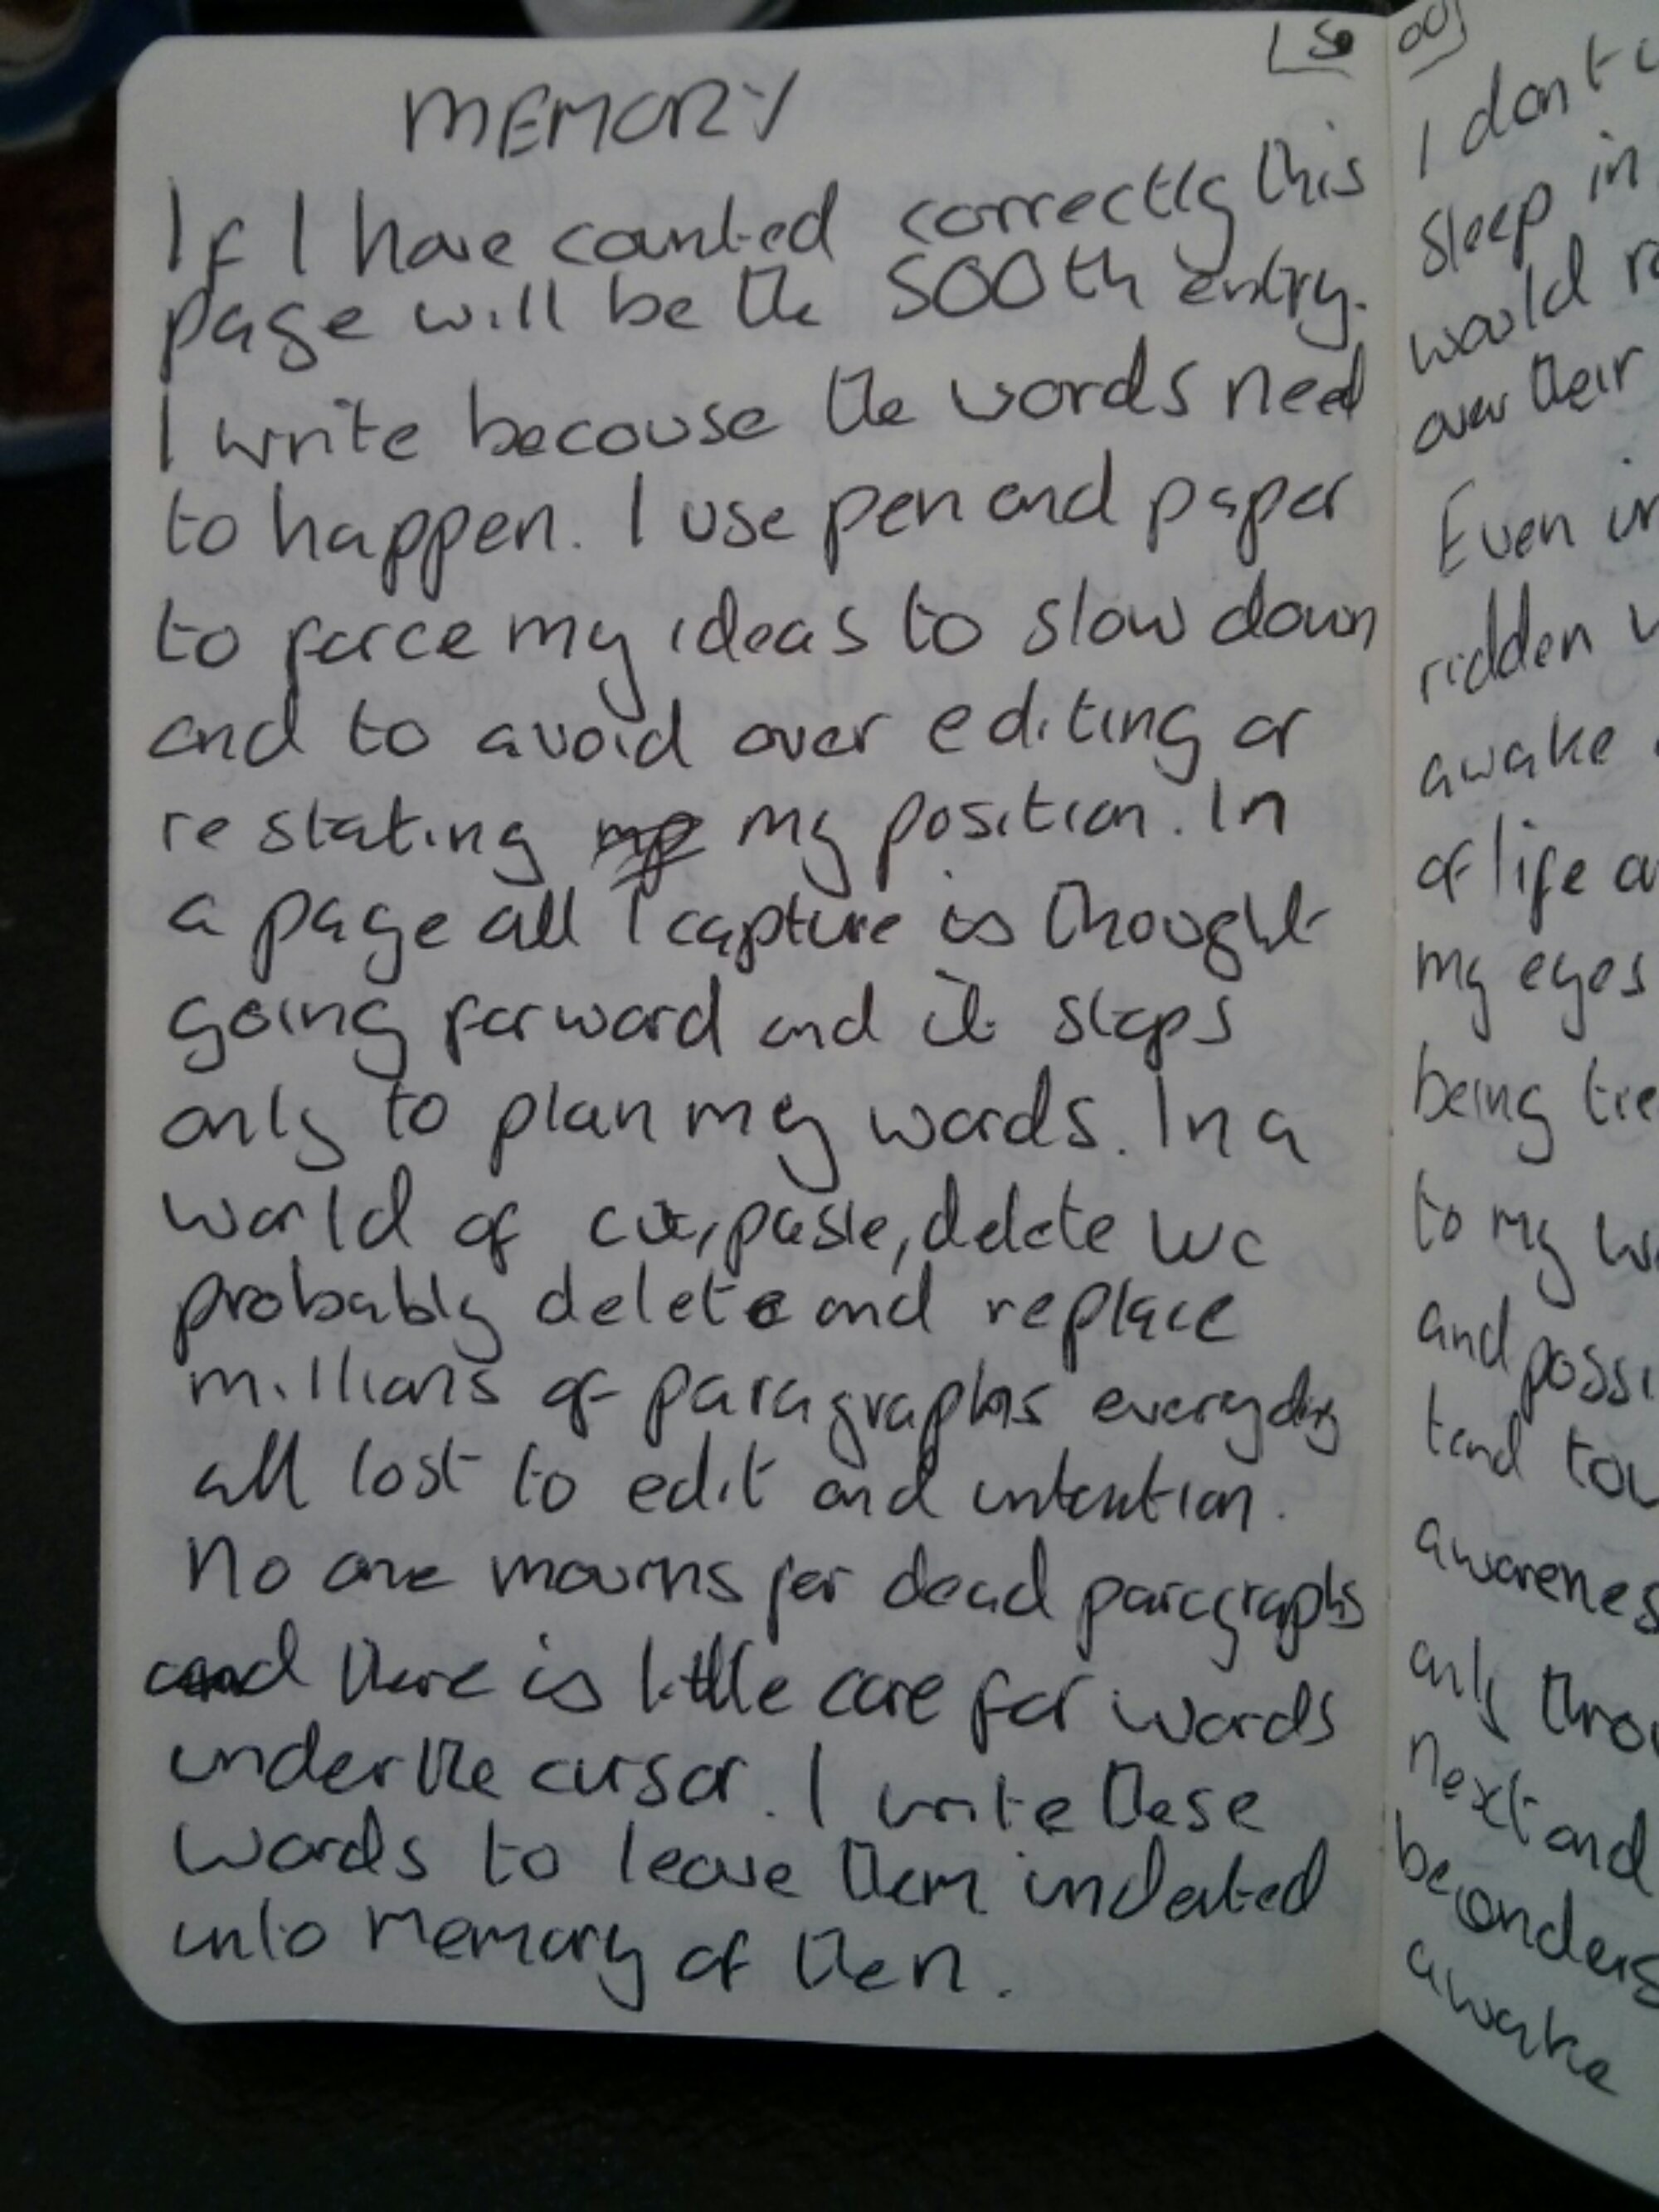 MEMORY
If I have counted correctly this
page will be the 500th entry.
I write becouse the words need
to happen. I use pen and paper
to force my ideas to slow down
and to avoid over editing or
restating my position. In
a page all I capture is thought
going forward and it stops
only to plan my words. In a
world of cut, paste, delete we
probably delete and replace
millions of paragraphs everyday
all lost to edit and intention.
No one mourns for dead paragraphs
and there is little care for words
under the cursor. I write these
words to leave them indented
into memory of then.
I dont
sleep in
would
over their
Even
ridden
awake
of life
my eyes
being
to my
and
tend
only
next and
awake